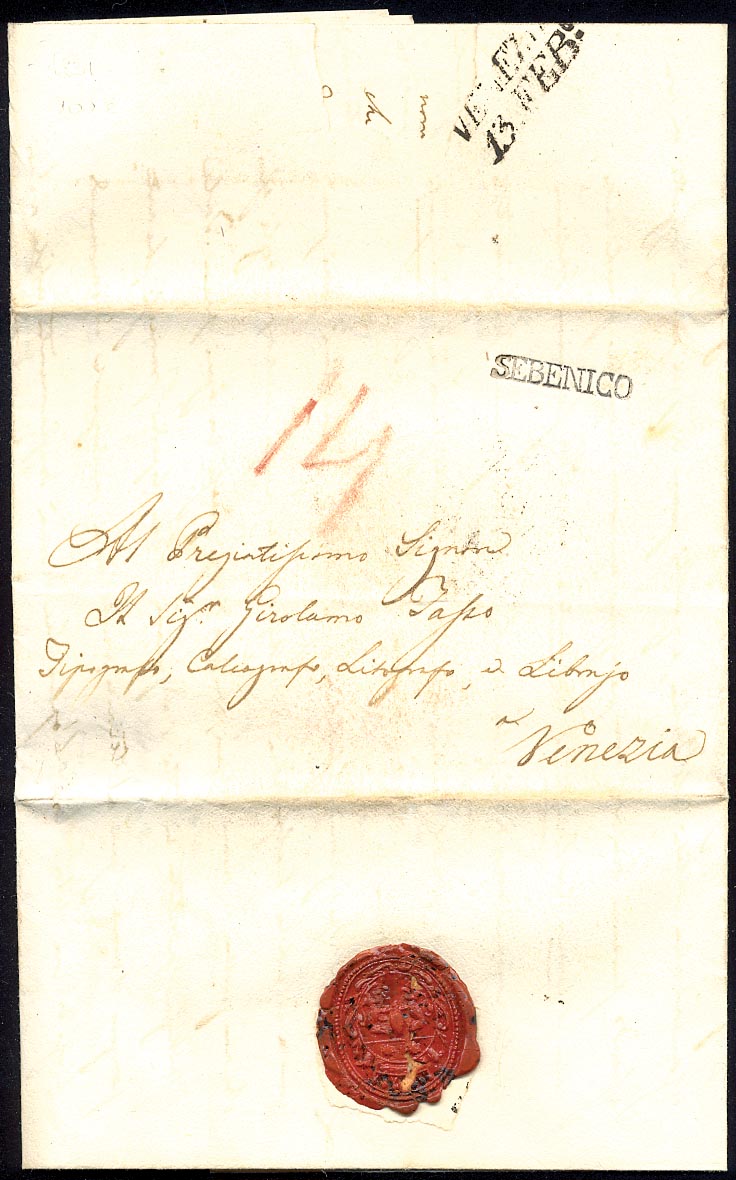 non
che
VENEZIA
13. FEB.º
SEBENICO
14
Al Pregiatissimo Signor
Il Sig.r Girolamo Tasso
Tipografo, Calcografo, Litografo, e Librajo
a
Venezia